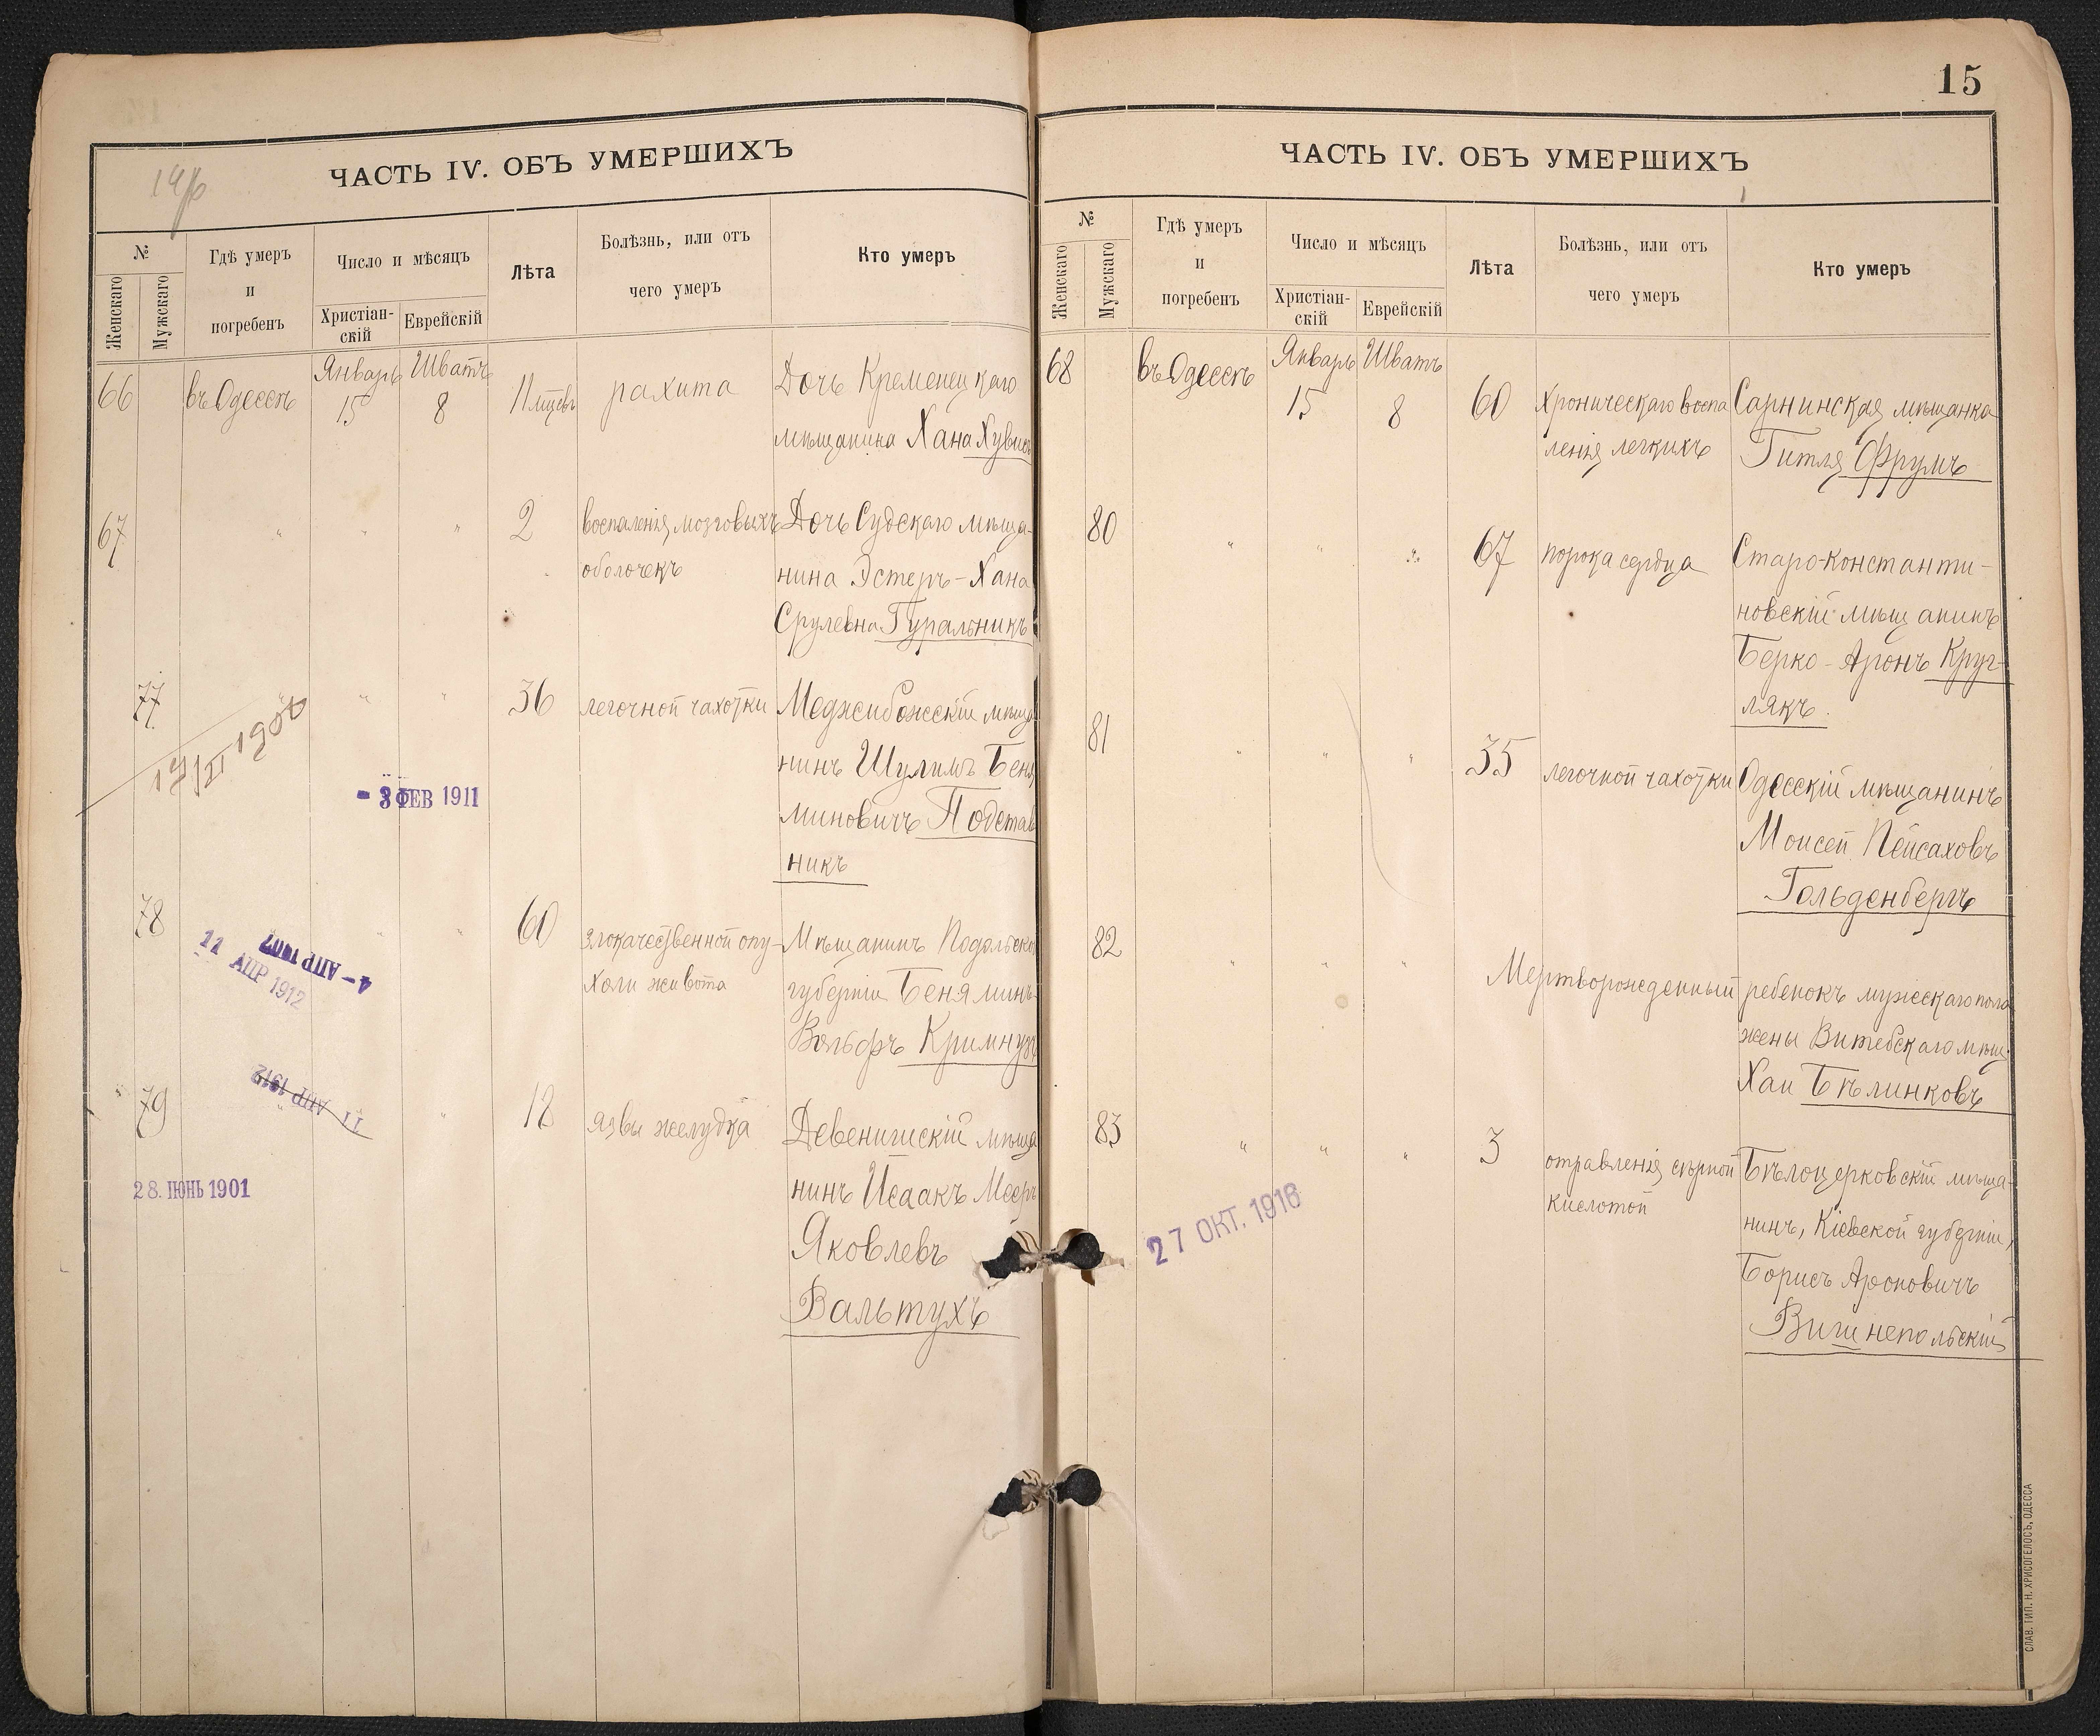 15
ЧАСТЬ IV. ОБЪ УМЕРШИХЪ
№
Женскаго
Мужскаго
Гдѣ умеръ
и
погребенъ
Число и мѣсяцъ
Христіан-
скій
Еврейскій
Лѣта
Болѣзнь, или отъ
чего умеръ
Кто умеръ
66 въ Одессѣ Январь 15 Шватъ 8 11 мцевъ рахита Дочь Кременецкаго
мѣщанина Хана
67 " " " 2 воспаленія мозговыхъ Дочь Судскаго мѣща-
оболочекъ нина Эстеръ-Хана
Срулевна Гуральникъ
77 " " " 36 легочной чахотки Меджибожскій мѣща
нинъ Шулимъ Беня
миновичъ Подстав
никъ
- 3 ФЕВ 1911
78 " " 60 злокачественной опу- Мѣщанинъ Подольской
холи живота губерніи Беняминъ-
Вольфъ
4 - АПР
11 АПР 1912
11 АПР 1912
79 " " 18 язвы желудка Девенишскій мѣща
нинъ Исаакъ Мееръ
Яковлевъ
Вальтухъ
28. ІЮНЬ 1901
ЧАСТЬ IV. ОБЪ УМЕРШИХЪ
№
Женскаго
Мужскаго
Гдѣ умеръ
и
погребенъ
Число и мѣсяцъ
Христіан-
скій
Еврейскій
Лѣта
Болѣзнь, или отъ
чего умеръ
Кто умеръ
68 въ Одессѣ Январь 15 Шватъ 8 60 Хроническаго воспа Сарнинская мѣщанка
ленія легкихъ Гитля Фрумъ
80 " " " 67 порока сердца Старо-константи-
новскій мѣщанинъ
Берко-Аронъ Круг-
лякъ.
81 " " " 35 легочной чахотки Одесскій мѣщанинъ
Моисей Пейсаховъ
Гольденбергъ
82 " " " Мертворожденный ребенокъ мужескаго пола
жены Витебскаго мѣщ.
Хаи Бѣлинковъ
83 " " " 3 отравленія сѣрной Бѣлоцерковскій мѣща-
кислотой нинъ, Кіевской губерніи,
Борисъ Ароновичъ
Вишнепольскій
27 ОКТ. 1916
СЛАВ. ТИП. Н. ХРИСОГЕЛОСЪ, ОДЕССА